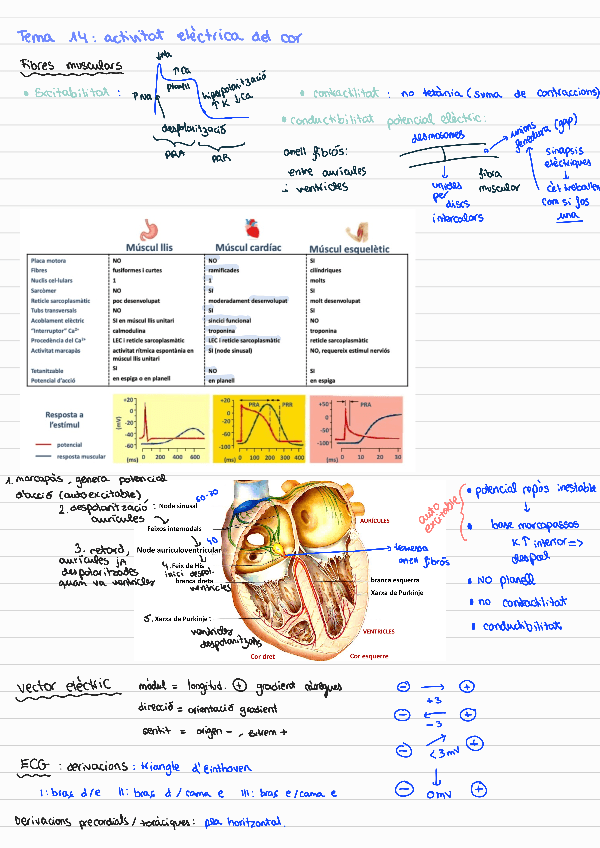 Tema 14: activitat elèctrica del cor
Fibres musculars
• Excitabilitat :
↓Na
↑Ca
planell
↑Na
hiperpolarització
↑K ↓Ca
despolarització
PRA
PRR
• contractilitat : no tetània (suma de contraccions)
• conductibilitat potencial elèctric:
anell fibrós:
entre aurícules
i ventricles
desmosomes
unions
fenedura (gap)
unides
per
discs
intercalars
fibra
muscular
sinapsis
elèctriques
↓
cèl treballen
com si fos
una
Múscul llis Múscul cardíac Múscul esquelètic
Placa motora NO NO SI
Fibres fusiformes i curtes ramificades cilíndriques
Nuclis cel·lulars 1 1 molts
Sarcòmer NO SI SI
Reticle sarcoplasmàtic poc desenvolupat moderadament desenvolupat molt desenvolupat
Tubs transversals NO SI SI
Acoblament elèctric SI en múscul llis unitari sincici funcional NO
"Interruptor" Ca²⁺ calmodulina troponina troponina
Procedència del Ca²⁺ LEC i reticle sarcoplasmàtic LEC i reticle sarcoplasmàtic reticle sarcoplasmàtic
Activitat marcapàs activitat rítmica espontània en SI (node sinusal) NO, requereix estímul nerviós
múscul llis unitari
Tetanitzable SI NO SI
Potencial d'acció en espiga o en planell en planell en espiga
Resposta a
l'estímul
potencial
resposta muscular
(mV)
+20
0
-20
-40
-60
(ms) 0 200 400 600
+20
0
-20
-60
-100
PRA PRR
(ms) 0 100 200 300 400
+50
0
-50
-100
PRA
(ms) 0 10 20 30
1. marcapàs, genera potencial
d'acció (autoexcitable),
2. despolarització :
aurícules
Node sinusal
60-70
Feixos internodals
3. retard,
aurícules ja
despolaritzades
quan va ventricles
Node auriculoventricular
40
4. Feix de His
inici despol.
ventricles
branca dreta
5. Xarxa de Purkinje :
ventricles
despolaritzats
AURÍCULES
travessa
anell fibrós
branca esquerra
Xarxa de Purkinje
VENTRICLES
Cor dret
Cor esquerre
auto
excitable
• potencial repòs inestable
↓
• base marcapassos
K↑ interior =>
despol
• NO planell
• no contractilitat
• conductibilitat
vector elèctric
mòdul = longitud. ⊕ gradient càrregues
direcció = orientació gradient
sentit = origen - , extrem +
⊖ → ⊕
+3
⊖ ← ⊕
-3
⊖ ↗ ⊕
<3mV
⊖ ↓ ⊕
0mV
ECG : derivacions : triangle d'Einthoven
I: braç d/e II: braç d / cama e III: braç e/cama e
Derivacions precordials / toràciques: pla horitzontal.